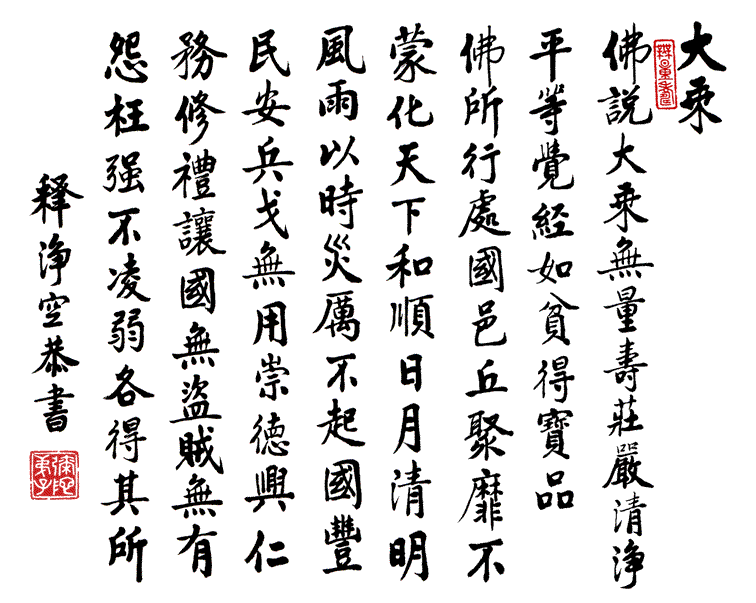 大乘
無量壽
佛說大乘無量壽莊嚴清淨
平等覺經如貧得寶品
佛所行處國邑丘聚靡不
蒙化天下和順日月清明
風雨以時災厲不起國豐
民安兵戈無用崇德興仁
務修禮讓國無盜賊無有
怨枉强不凌弱各得其所
釋淨空恭書
彌陀弟子